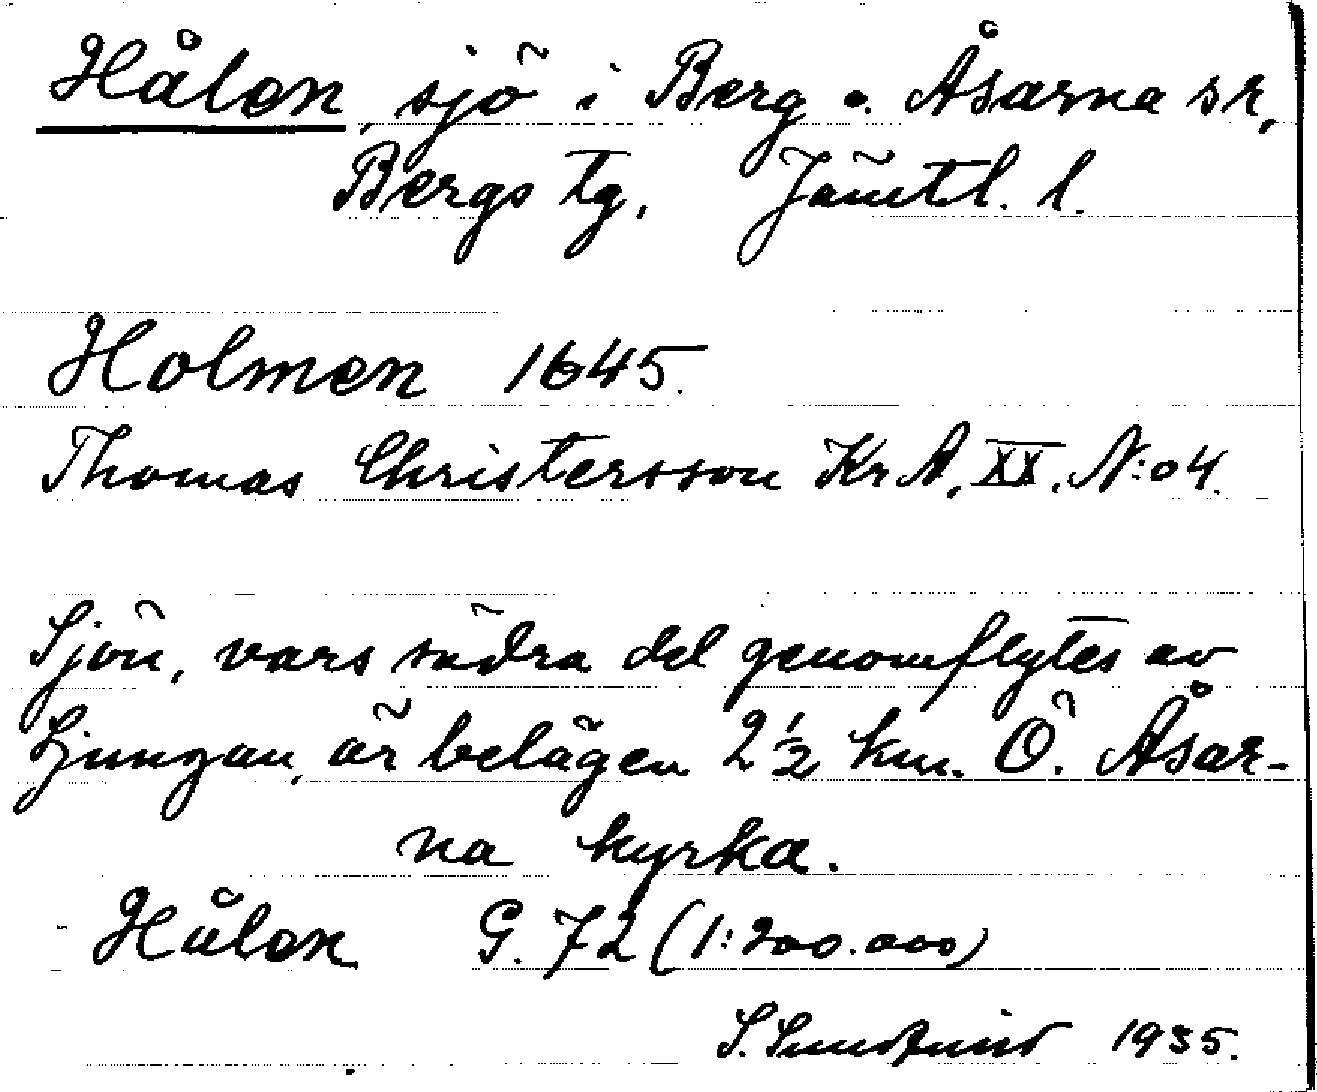 Hålen, sjö i Berg o. Åsarna sn,
Bergs tg, Jämtl. l.
Holmen 1645.
Thomas Christersson Kr A, XX, N:o 4.
Sjön, vars södra del genomflytes av
Ljungan, är belägen 2 ½ km. Ö. Åsar-
na kyrka.
Hålen G. 72 (1:200.000)
S. 1935.